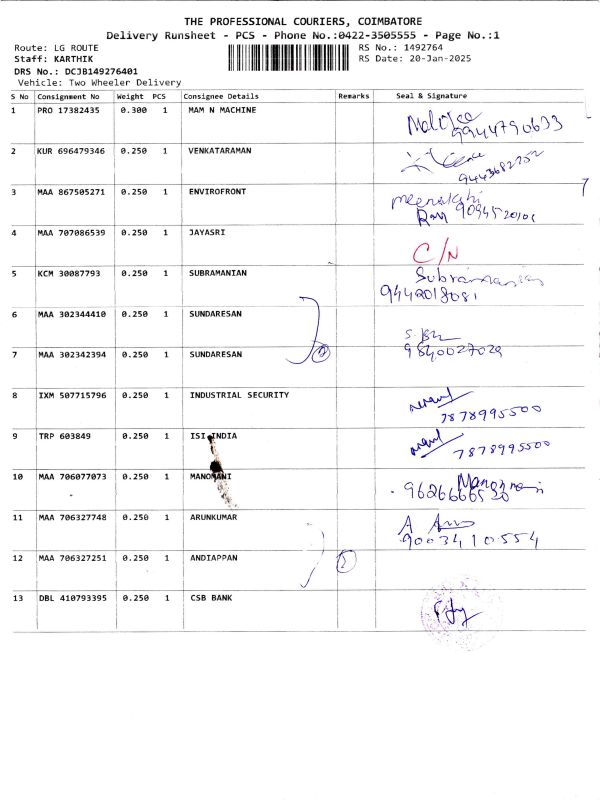 THE PROFESSIONAL COURIERS, COIMBATORE
Delivery Runsheet - PCS - Phone No.:0422-3505555 - Page No.:1
Route: LG ROUTE RS No.: 1492764
Staff: KARTHIK RS Date: 20-Jan-2025
DRS No.: DCJB149276401
Vehicle: Two Wheeler Delivery
S No Consignment No Weight PCS Consignee Details Remarks Seal & Signature
1 PRO 17382435 0.300 1 MAM N MACHINE
9944790633
2 KUR 696479346 0.250 1 VENKATARAMAN
9443682752
3 MAA 867505271 0.250 1 ENVIROFRONT meenakshi
4 MAA 707086539 0.250 1 JAYASRI C/N
5 KCM 30087793 0.250 1 SUBRAMANIAN Subramanian
9442018081
6 MAA 302344410 0.250 1 SUNDARESAN
7 MAA 302342394 0.250 1 SUNDARESAN 9840027029
8 IXM 507715796 0.250 1 INDUSTRIAL SECURITY
7878995500
9 TRP 603849 0.250 1 ISI INDIA
7878995500
10 MAA 706077073 0.250 1 MANOMANI
11 MAA 706327748 0.250 1 ARUNKUMAR
9003410554
12 MAA 706327251 0.250 1 ANDIAPPAN
13 DBL 410793395 0.250 1 CSB BANK